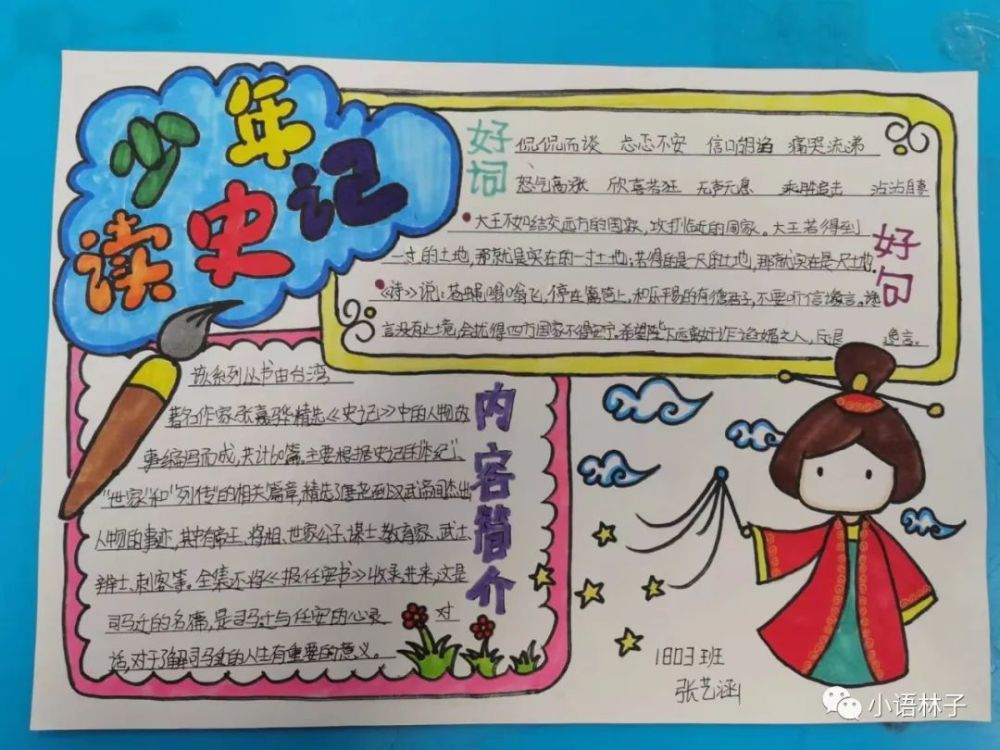 少年
读史记
好词
侃侃而谈 忐忑不安 信口胡诌 痛哭流涕
怒气高涨 欣喜若狂 无声无息 乘胜追击 沾沾自喜
好句
大王不如结交远方的国家,攻打临近的国家。大王若得到
一寸的土地,那就是实在的一寸土地;若得的是一尺的土地,那就实在是一尺土地.
《诗》说:苍蝇嗡嗡飞,停在篱笆上,和乐平易的有德君子,不要听信谗言。谗
言没有止境,会扰得四方国家不得安宁.希望陛下远离奸诈谄媚之人, 逸言.
内容简介
该系列丛书由台湾
著名作家张嘉骅精选《史记》中的人物故
事编写而成,共计60篇.主要根据史记的"本纪"、
"世家"和"列传"的相关篇章,精选了唐尧到汉武帝间杰出
人物的事迹,其中有帝王、将相、世家公子、谋士、教育家、武士、
辨士、刺客等。全集还将《报任安书》收录进来,这是
司马迁的名痛,是司马迁与任安的心录 对
话,对于了解司马迁的人生有重要的意义。
1803班
张艺涵
小语林子